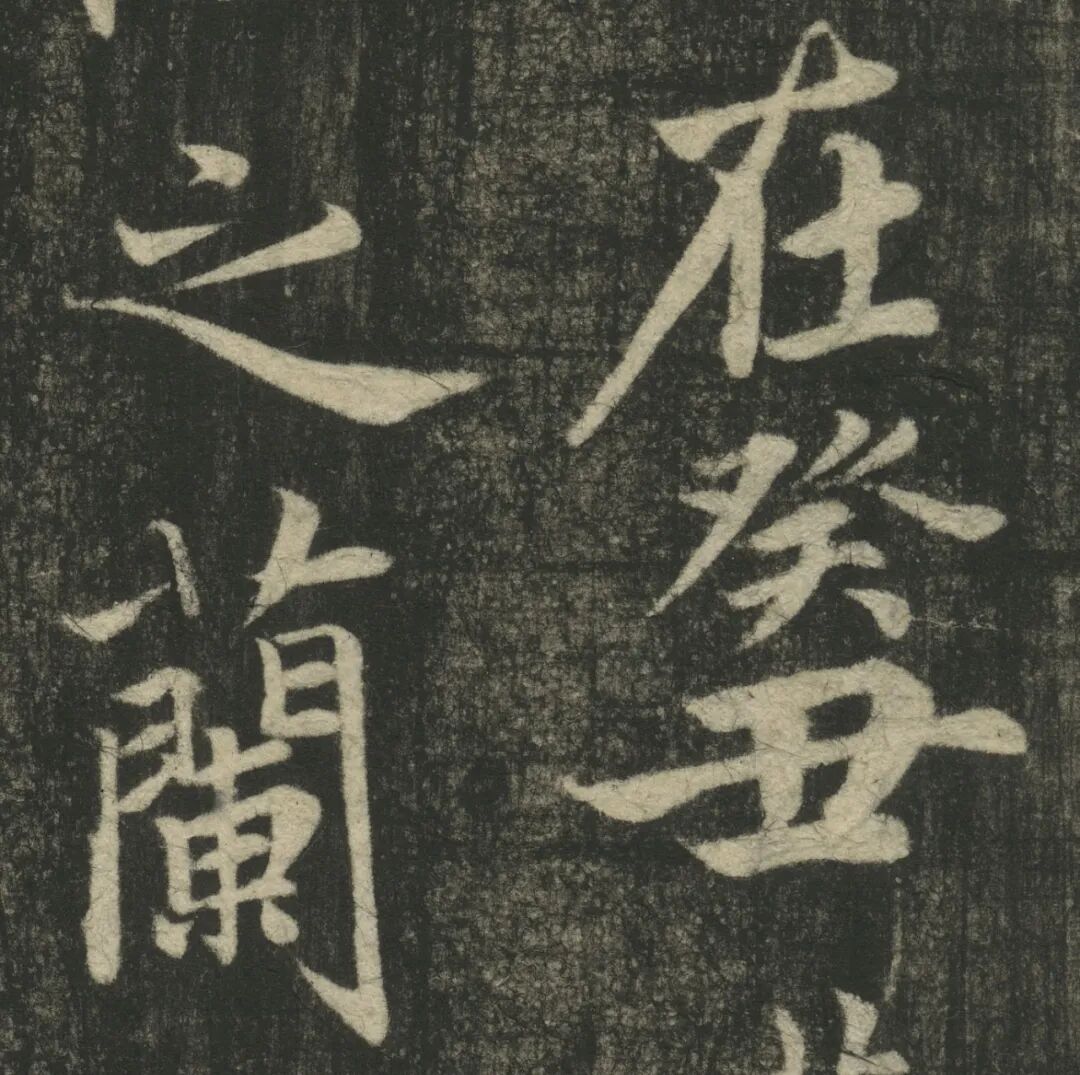 在癸丑
之蘭